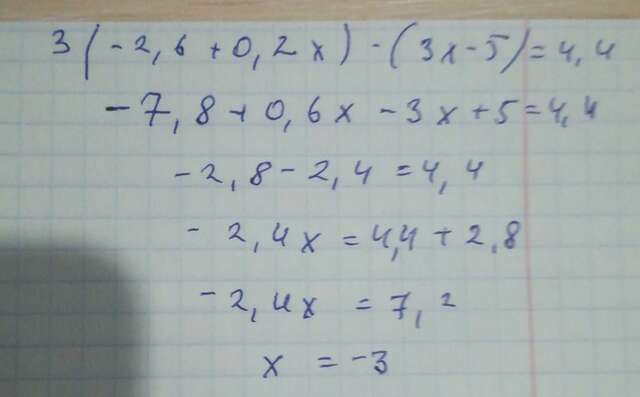 3(-2,6+0,2x)-(3x-5)=4,4
-7,8+0,6x-3x+5=4,4
-2,8-2,4=4,4
-2,4x=4,4+2,8
-2,4x=7,2
x=-3